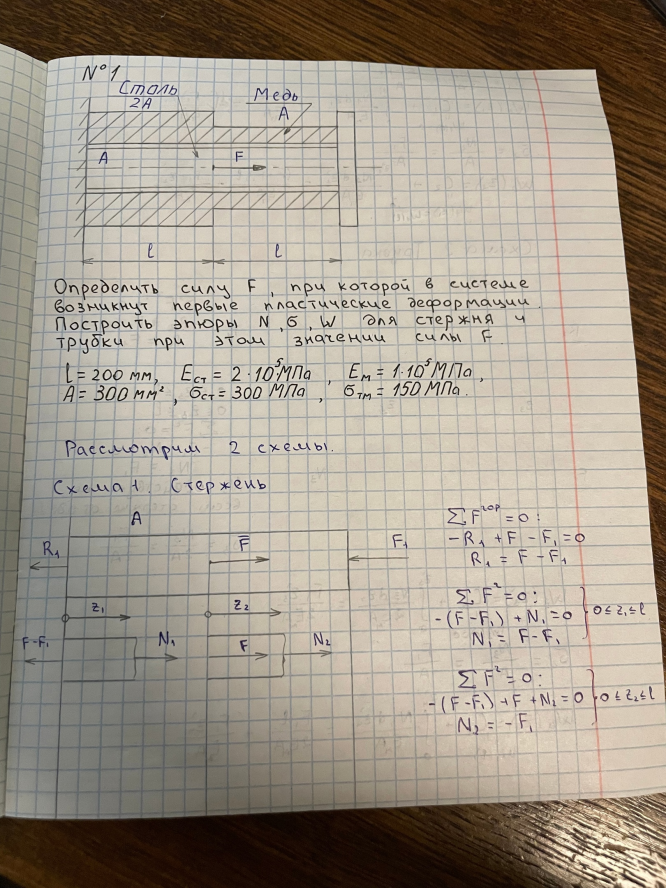 N°1
Сталь
2A
Медь
A
A
F
l
l
Определить силу F, при которой в системе
возникнут первые пластические деформации.
Построить эпюры N, σ, W для стержня и
трубки при этом значении силы F.
l = 200 мм, Eст = 2·10⁵ МПа, Eм = 1·10⁵ МПа,
A = 300 мм², σст = 300 МПа, σтм = 150 МПа.
Рассмотрим 2 схемы.
Схема 1. Стержень
A
R₁
F̅
F₁
z₁
z₂
F-F₁
N₁
F
N₂
ΣFгор = 0:
-R₁ + F - F₁ = 0
R₁ = F - F₁
ΣFᶻ = 0:
-(F-F₁) + N₁ = 0
N₁ = F - F₁
0 ≤ z₁ ≤ l
ΣFᶻ = 0:
-(F-F₁) + F + N₂ = 0
N₂ = -F₁
0 ≤ z₂ ≤ l